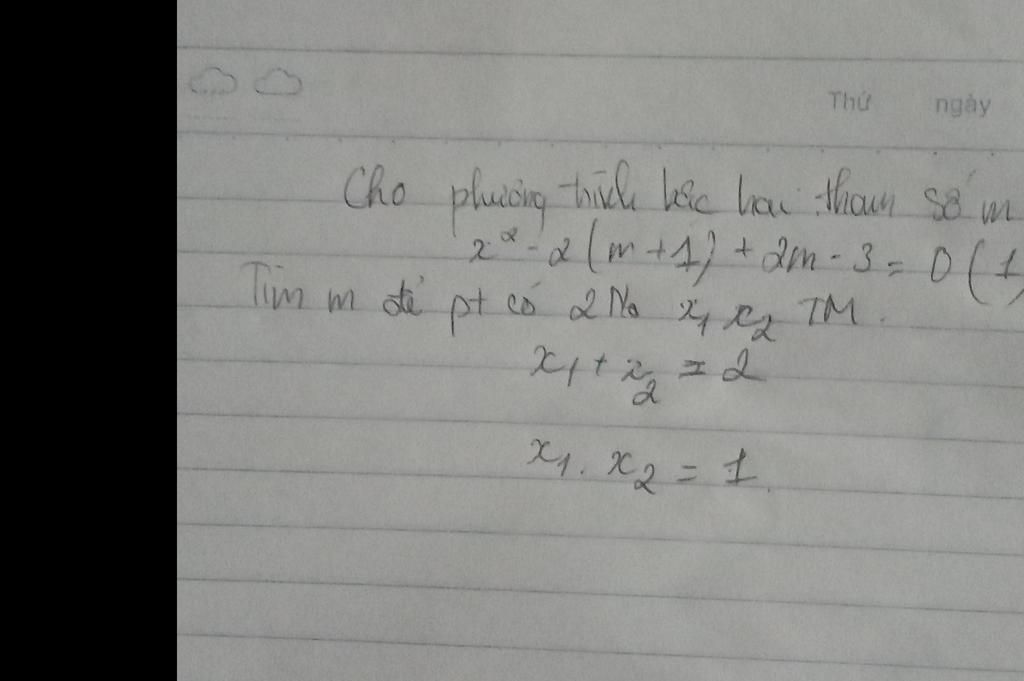 Thứ ngày
Cho phương trình bậc hai tham số m
x² - 2(m+1) + 2m - 3 = 0 (1)
Tìm m để pt có 2 No x₁ x₂ TM.
x₁ + x₂ = 2
x₁ . x₂ = 1.